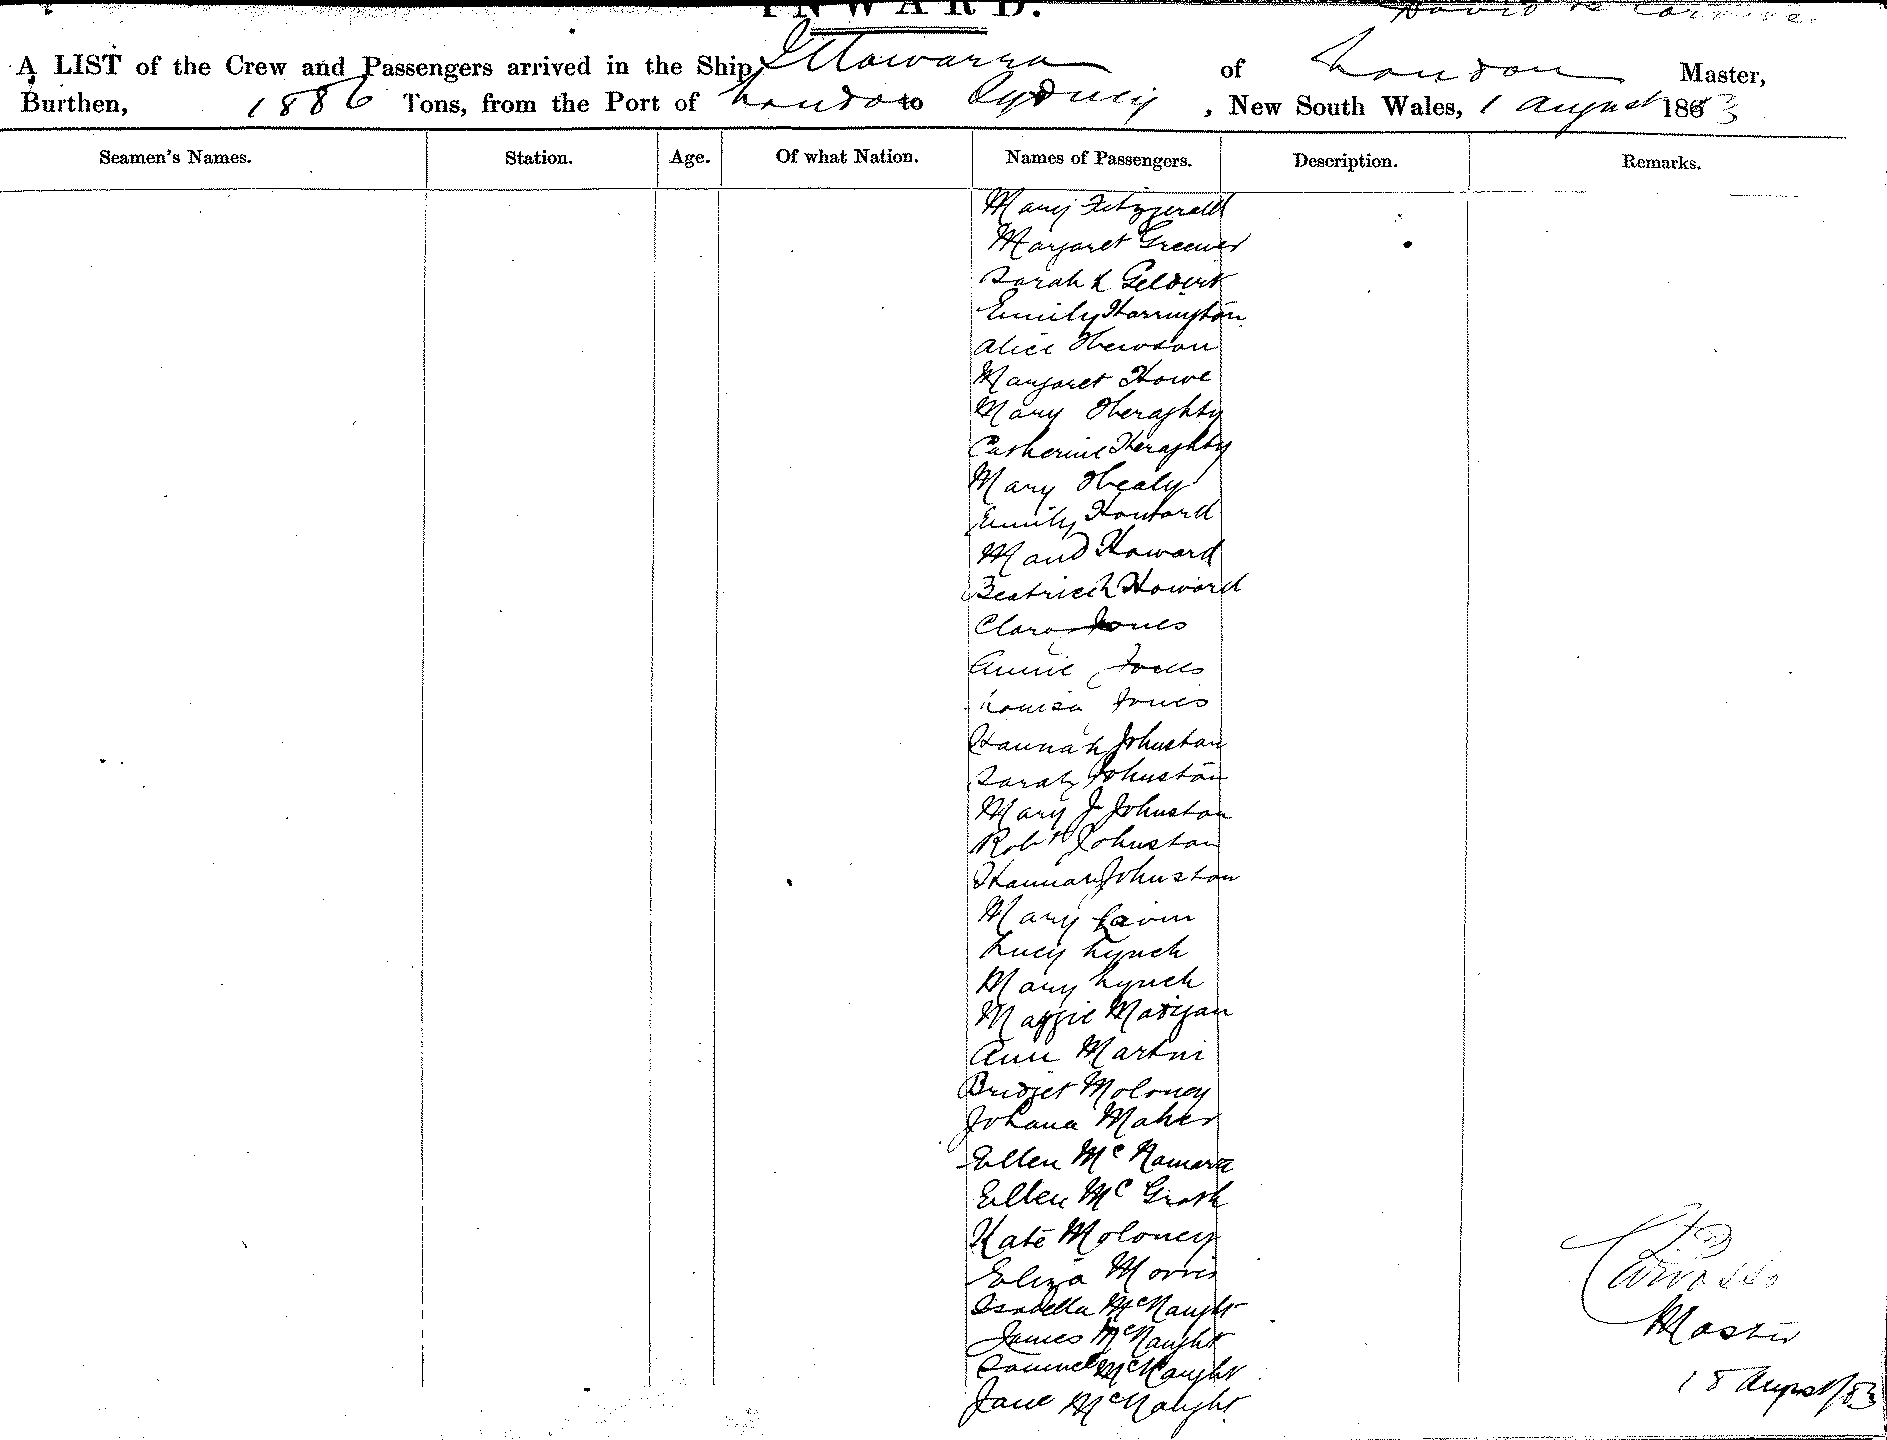 INWARD.
A LIST of the Crew and Passengers arrived in the Ship Illawarra of London Master,
Burthen, 1886 Tons, from the Port of London to Sydney, New South Wales, 1 August 1883
Seamen's Names. Station. Age. Of what Nation. Names of Passengers. Description. Remarks.
Mary Fitzgerald
Margaret Greener
Sarah L Geldert
Emily Harrington
Alice Hewson
Margaret Howe
Mary Heraghty
Catherine Heraghty
Mary Healy
Emily Howard
Maud Howard
Beatrice L Howard
Clara Jones
Annie Jones
Louisa Jones
Hannah Johnston
Sarah Johnston
Mary J Johnston
Robt Johnston
Hannah Johnston
Mary Lavin
Lucy Lynch
Mary Lynch
Maggie Madigan
Ann Martin
Bridget Moloney
Johana Maher
Ellen McNamara
Ellen McGrath
Kate Moloney
Eliza Morris
Isabella McNaught
James McNaught
Samuel McNaught
Jane McNaught
Master
18 August/83